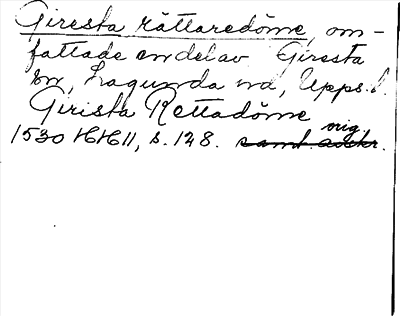 Giresta rättaredöme, om-
fattade en del av Giresta
sn, Lagunda hd, Upps. l.
Girista Rettadöme
1530 HH II, s. 128. samt avskr. orig.